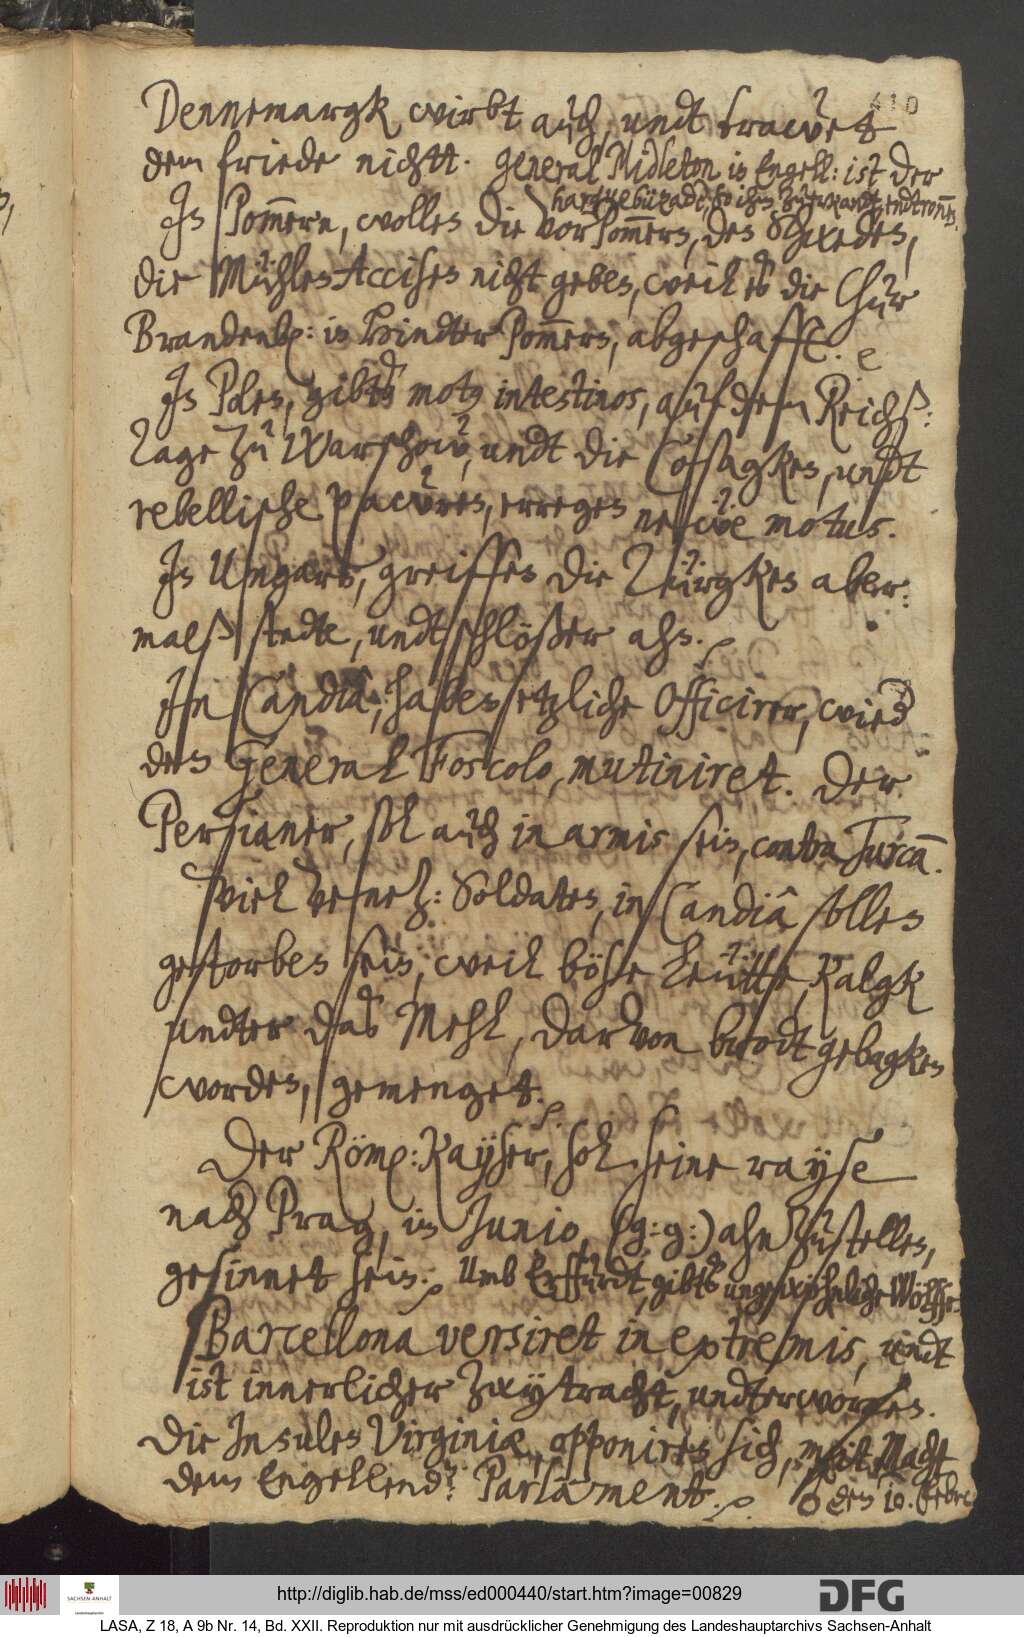 410
Dennemargk wirbt auch, undt trawet
dem friede nichtt. General Midleton in Engell: ist der
haft zu entronnen.
In Pom̄ern, wollen die VorPom̄ern, des Schweden,
die Mühlen Accisen nicht geben, weil es die Chur
Brandenb: in Hindter Pom̄ern, abgeschafft.
In Polen, gibts motus intestinos, auf dem Reichß:
Tage zu Warschow, undt die Cossagken, undt
rebellische pawren, erregen newe motus.
In Ungarn, greiffen die Türgken aber:
malß stedte, undt schlößer ahn.
In Candia, haben etzliche Officirer, wied
den General Foscolo, mutiniret. Der
Persianer, soll auch in armis sein, contra Turcā.
Viel Venetz: Soldaten, in Candiâ sollen
gestorben sein, weil böse Leutte, Kalgk
undter das Mehl, dardvon brodt gebagken
worden, gemenget.
Der Röm: Kayser, soll seine rayse
nach Prag, im Junio, (g: g:) ahnzustellen,
gesinnet sein. Umb Erffurdt, gibts ungewöhnliche Wölffe.
Barcellona versiret in extremis, undt
ist innerlicher zwytracht, undterworfen.
Die Insulen Virginiæ, opponiren sich, mit Macht
dem Engellend: Parlament. den 10. Febr:
http://diglib.hab.de/mss/ed000440/start.htm?image=00829
SACHSEN-ANHALT
Landeshauptarchiv
DFG
LASA, Z 18, A 9b Nr. 14, Bd. XXII. Reproduktion nur mit ausdrücklicher Genehmigung des Landeshauptarchivs Sachsen-Anhalt